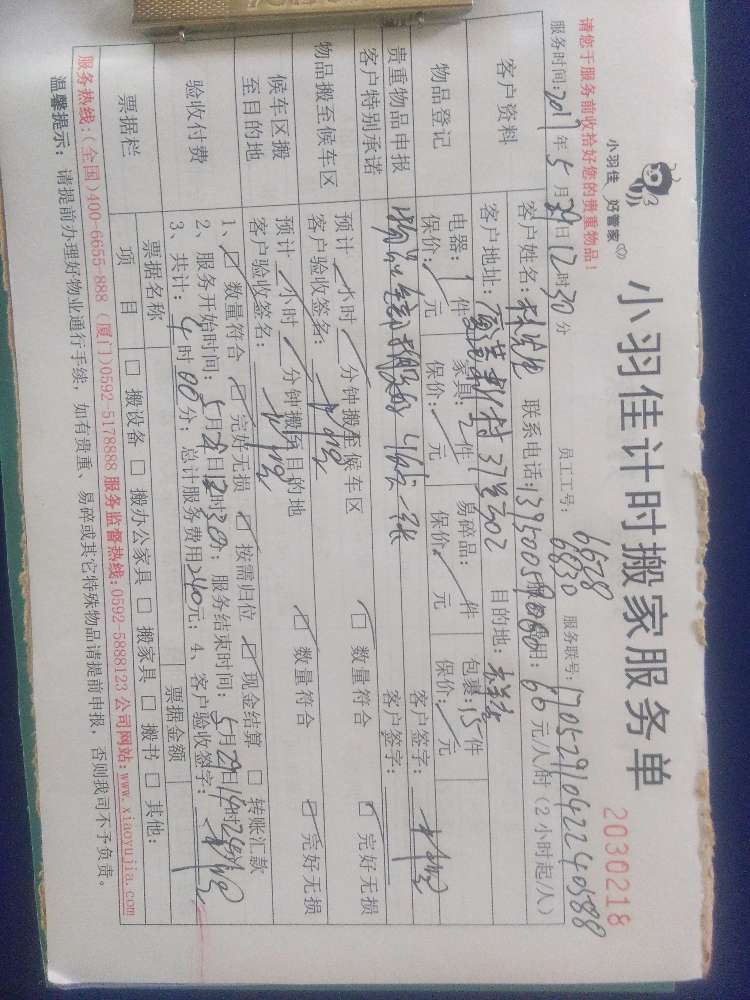 小羽佳 好管家
小羽佳计时搬家服务单
2030218
请您于服务前收拾好您的贵重物品!
员工工号: 6678 6830 服务联号: 17052910422240588
服务时间:2017年5月29日12时30分
客户资料
客户姓名: 联系电话: 费用: 60元/人/时(2小时起/人)
客户地址: 目的地:
物品登记
电器: 1件 家具: 2件 易碎品: 件 包裹: 15件
保价: 元 保价: 元 保价: 元 保价: 元
贵重物品申报
客户签字:
客户特别承诺
客户签字:
物品搬至候车区
预计 小时 分钟搬至候车区 □ 数量符合 □ 完好无损
客户验收签名:
候车区搬至目的地
预计 小时 分钟搬至目的地 □ 数量符合 □ 完好无损
客户验收签名:
验收付费
1、□ 数量符合 □ 完好无损 □ 按需归位 □ 现金结算 □ 转账汇款
2、服务开始时间: 5月29日12时30分; 服务结束时间: 5月29日14时 分
3、共计: 4时00分; 总计服务费用240元; 4、客户验收签字:
票据栏
票据名称 票据金额
项目 □ 搬设备 □ 搬办公家具 □ 搬家具 □ 搬书 □ 其他:
服务热线:(全国)400-6655-888 (厦门)0592-5178888 服务监督热线:0592-5888123 公司网站:www.xiaoyujia.com
温馨提示: 请提前办理好物业通行手续, 如有贵重、易碎或其它特殊物品请提前申报, 否则我司不予负责。